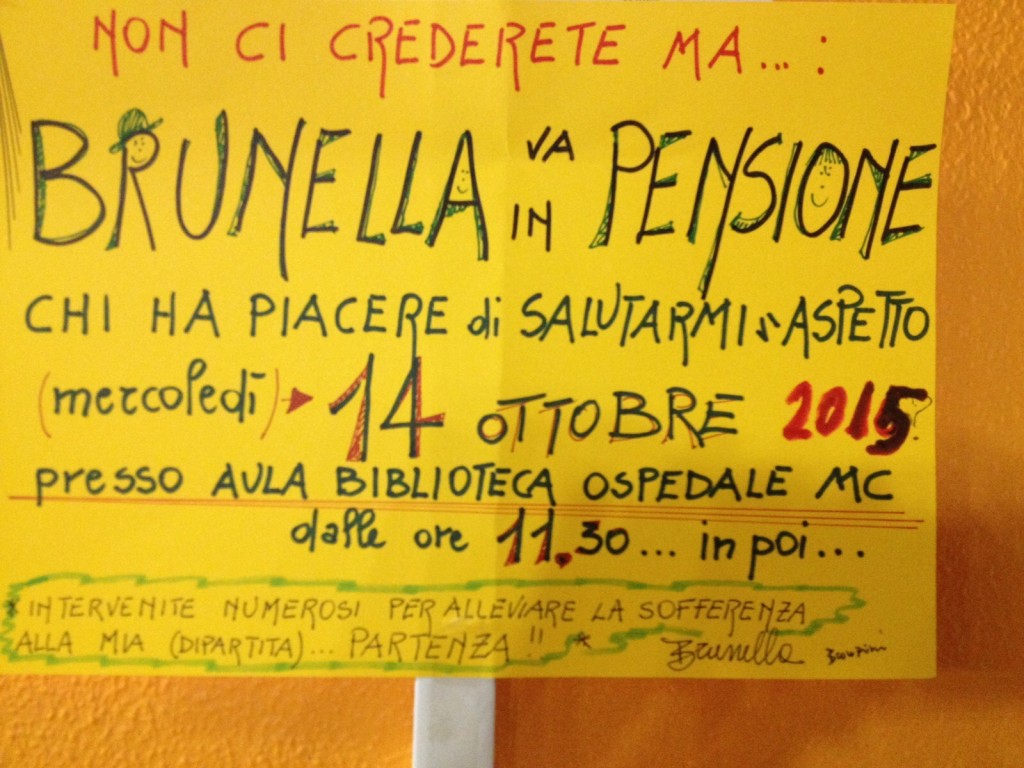 NON CI CREDERETE MA...:
BRUNELLA VA IN PENSIONE
CHI HA PIACERE di SALUTARMI ASPETTO
(mercoledì) 14 OTTOBRE 2015
presso AULA BIBLIOTECA OSPEDALE MC
dalle ore 11.30... in poi...
* INTERVENITE NUMEROSI PER ALLEVIARE LA SOFFERENZA
ALLA MIA (DIPARTITA)... PARTENZA!! *
Brunella